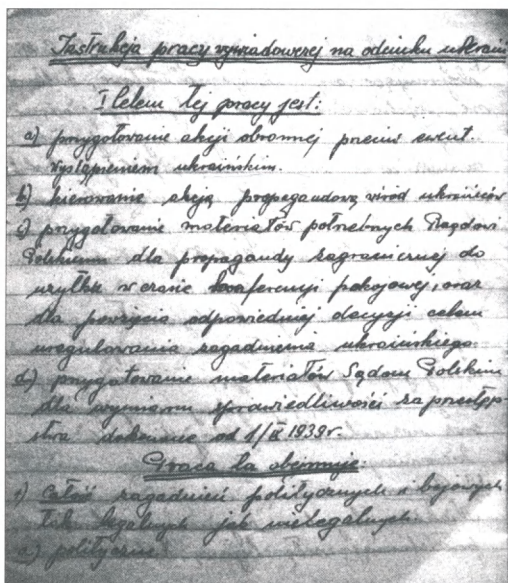 Instrukcja pracy wywiadowczej na odcinku ukraiń
I Celem tej pracy jest:
a) przygotowanie akcji obronnej przeciw ewent.
wystąpieniom ukraińskim.
b) kierowanie akcją propagandową wśród ukraińców
c) przygotowanie materiałów potrzebnych Rządowi
Polskiemu dla propagandy zagranicznej do
użytku w czasie konferencji pokojowej, oraz
dla powzięcia odpowiedniej decyzji celem
uregulowania zagadnienia ukraińskiego.
d) przygotowanie materiałów Sądom Polskim
dla wymiaru sprawiedliwości za przestęp-
stwa dokonane od 1/IX 1939r.
Praca ta obejmuje:
1) Całość zagadnień politycznych i bojowych
tak legalnych jak nielegalnych.
a) polityczne: